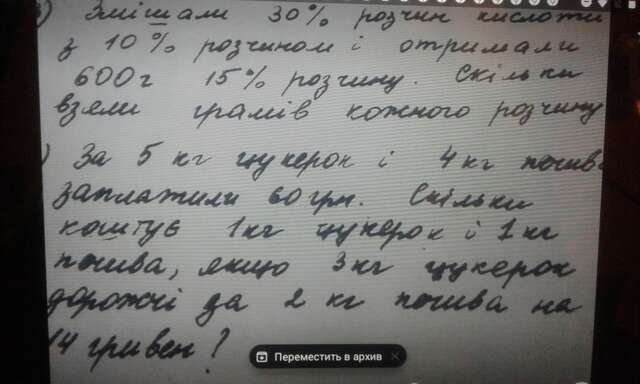 3) Змішали 30% розчин кислоти
з 10% розчином і отримали
600г 15% розчину. Скільки
взяли грамів кожного розчину
) За 5 кг цукерок і 4кг печива
заплатили 60грн. Скільки
коштує 1кг цукерок і 1кг
печива, якщо 3кг цукерок
дорожчі за 2 кг печива на
14 гривен?
Переместить в архив